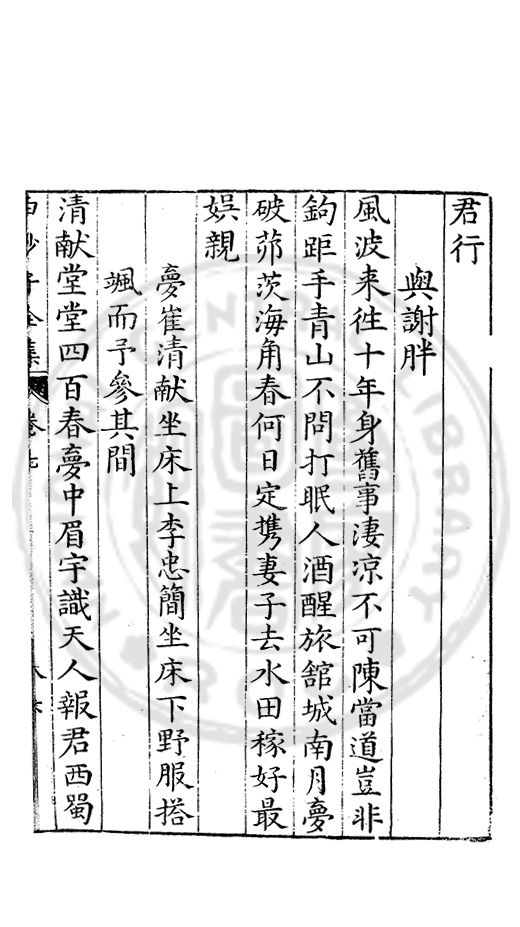 君行
與謝胖
風波来徃十年身舊事淒凉不可陳當道豈非
鉤距手青山不問打眠人酒醒旅舘城南月夢
破茆茨海角春何日定携妻子去水田稼好最
娯親
夢崔清献坐床上李忠簡坐床下野服搭
颯而予參其間
清献堂堂四百春夢中眉宇識天人報君西蜀
白沙子全集 卷七